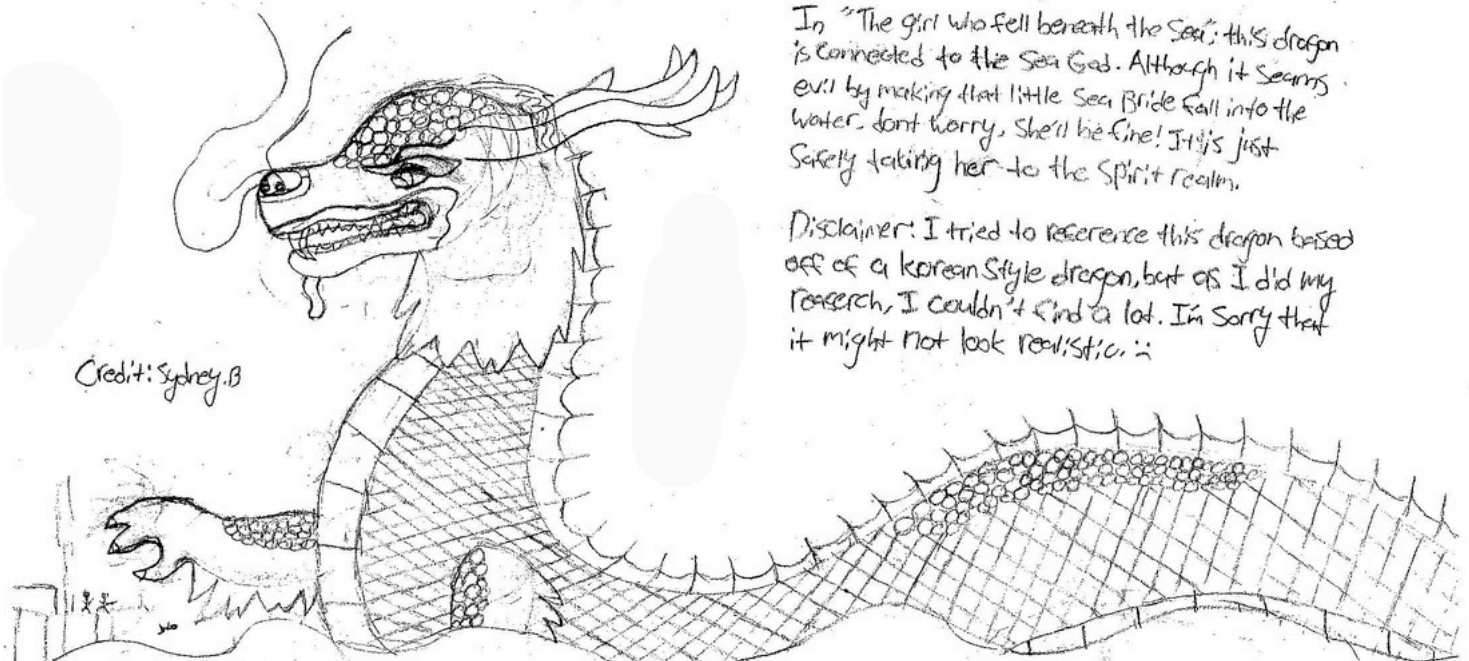 In "The girl who fell beneath the Sea", this dragon
is connected to the Sea God. Although it seams
evil by making that little Sea Bride fall into the
water, dont worry, She'll be fine! It is just
Safely taking her to the Spirit realm.
Disclaimer: I tried to reference this dragon based
off of a korean Style dragon, but as I did my
reaserch, I couldn't find a lot. I'm Sorry that
it might not look realistic. :(
Credit: Sydney.B